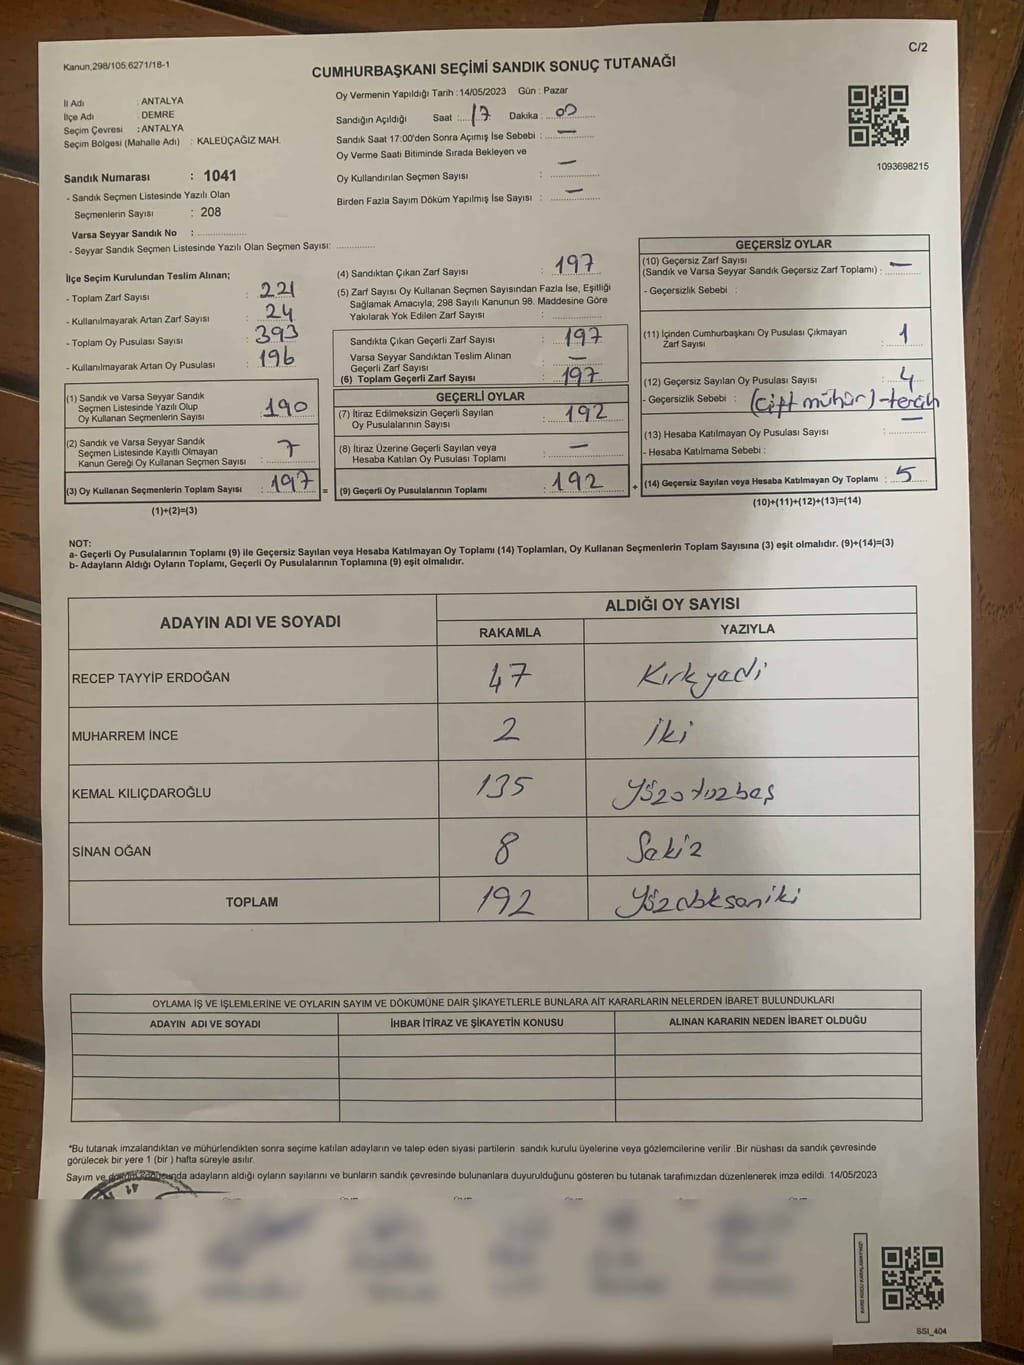 C/2
Kanun,298/105,6271/18-1
CUMHURBAŞKANI SEÇİMİ SANDIK SONUÇ TUTANAĞI
İl Adı : ANTALYA
İlçe Adı : DEMRE
Seçim Çevresi : ANTALYA
Seçim Bölgesi (Mahalle Adı) : KALEÜÇAĞIZ MAH.
Sandık Numarası : 1041
- Sandık Seçmen Listesinde Yazılı Olan
Seçmenlerin Sayısı : 208
Varsa Seyyar Sandık No :
- Seyyar Sandık Seçmen Listesinde Yazılı Olan Seçmen Sayısı:
Oy Vermenin Yapıldığı Tarih :14/05/2023 Gün : Pazar
Sandığın Açıldığı Saat : 17 Dakika : 00
Sandık Saat 17:00'den Sonra Açımış İse Sebebi : —
Oy Verme Saati Bitiminde Sırada Bekleyen ve
Oy Kullandırılan Seçmen Sayısı : —
Birden Fazla Sayım Döküm Yapılmış İse Sayısı : —
1093698215
İlçe Seçim Kurulundan Teslim Alınan;
- Toplam Zarf Sayısı : 221
- Kullanılmayarak Artan Zarf Sayısı : 24
- Toplam Oy Pusulası Sayısı : 393
- Kullanılmayarak Artan Oy Pusulası : 196
(1) Sandık ve Varsa Seyyar Sandık
Seçmen Listesinde Yazılı Olup
Oy Kullanan Seçmenlerin Sayısı : 190
(2) Sandık ve Varsa Seyyar Sandık
Seçmen Listesinde Kayıtlı Olmayan
Kanun Gereği Oy Kullanan Seçmen Sayısı : 7
(3) Oy Kullanan Seçmenlerin Toplam Sayısı : 197 =
(1)+(2)=(3)
(4) Sandıktan Çıkan Zarf Sayısı : 197
(5) Zarf Sayısı Oy Kullanan Seçmen Sayısından Fazla İse, Eşitliği
Sağlamak Amacıyla, 298 Sayılı Kanunun 98. Maddesine Göre
Yakılarak Yok Edilen Zarf Sayısı :
Sandıkta Çıkan Geçerli Zarf Sayısı : 197
Varsa Seyyar Sandıktan Teslim Alınan
Geçerli Zarf Sayısı : —
(6) Toplam Geçerli Zarf Sayısı : 197
GEÇERLİ OYLAR
(7) İtiraz Edilmeksizin Geçerli Sayılan
Oy Pusulalarının Sayısı : 192
(8) İtiraz Üzerine Geçerli Sayılan veya
Hesaba Katılan Oy Pusulası Toplamı : —
(9) Geçerli Oy Pusulalarının Toplamı : 192 +
GEÇERSİZ OYLAR
(10) Geçersiz Zarf Sayısı
(Sandık ve Varsa Seyyar Sandık Geçersiz Zarf Toplamı) : —
- Geçersizlik Sebebi :
(11) İçinden Cumhurbaşkanı Oy Pusulası Çıkmayan
Zarf Sayısı : 1
(12) Geçersiz Sayılan Oy Pusulası Sayısı : 4
- Geçersizlik Sebebi : (Çift mühür) - tercih
(13) Hesaba Katılmayan Oy Pusulası Sayısı : —
- Hesaba Katılmama Sebebi :
(14) Geçersiz Sayılan veya Hesaba Katılmayan Oy Toplamı : 5
(10)+(11)+(12)+(13)=(14)
NOT:
a- Geçerli Oy Pusulalarının Toplamı (9) ile Geçersiz Sayılan veya Hesaba Katılmayan Oy Toplamı (14) Toplamları, Oy Kullanan Seçmenlerin Toplam Sayısına (3) eşit olmalıdır. (9)+(14)=(3)
b- Adayların Aldığı Oyların Toplamı, Geçerli Oy Pusulalarının Toplamına (9) eşit olmalıdır.
ADAYIN ADI VE SOYADI
ALDIĞI OY SAYISI
RAKAMLA YAZIYLA
RECEP TAYYİP ERDOĞAN 47 Kırkyedi
MUHARREM İNCE 2 İki
KEMAL KILIÇDAROĞLU 135 Yüzotuzbeş
SİNAN OĞAN 8 Sekiz
TOPLAM 192 Yüzdoksaniki
OYLAMA İŞ VE İŞLEMLERİNE VE OYLARIN SAYIM VE DÖKÜMÜNE DAİR ŞİKAYETLERLE BUNLARA AİT KARARLARIN NELERDEN İBARET BULUNDUKLARI
ADAYIN ADI VE SOYADI İHBAR İTİRAZ VE ŞİKAYETİN KONUSU ALINAN KARARIN NEDEN İBARET OLDUĞU
*Bu tutanak imzalandıktan ve mühürlendikten sonra seçime katılan adayların ve talep eden siyasi partilerin sandık kurulu üyelerine veya gözlemcilerine verilir. Bir nüshası da sandık çevresinde
görülecek bir yere 1 (bir ) hafta süreyle asılır.
Sayım ve adayların aldığı oyların sayılarını ve bunların sandık çevresinde bulunanlara duyurulduğunu gösteren bu tutanak tarafımızdan düzenlenerek imza edildi. 14/05/2023
SSI_404